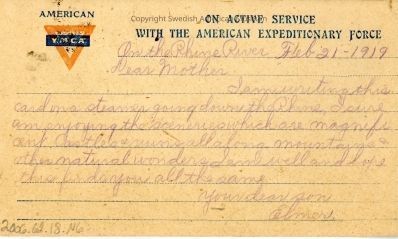 AMERICAN
Y.M.C.A.
Copyright Swedish American
ON ACTIVE SERVICE
WITH THE AMERICAN EXPEDITIONARY FORCE
On the Rhine River Feb 21-1919
Dear Mother
I am writing this
card on a steamer going down the Rhine, I sure
am enjoying the sceneries which are magnifi
cent Castles & ruins all along mountains &
other natural wonders I am well and hope
this finds you all the same
Your dear son
Elmer
2006.62.18.46